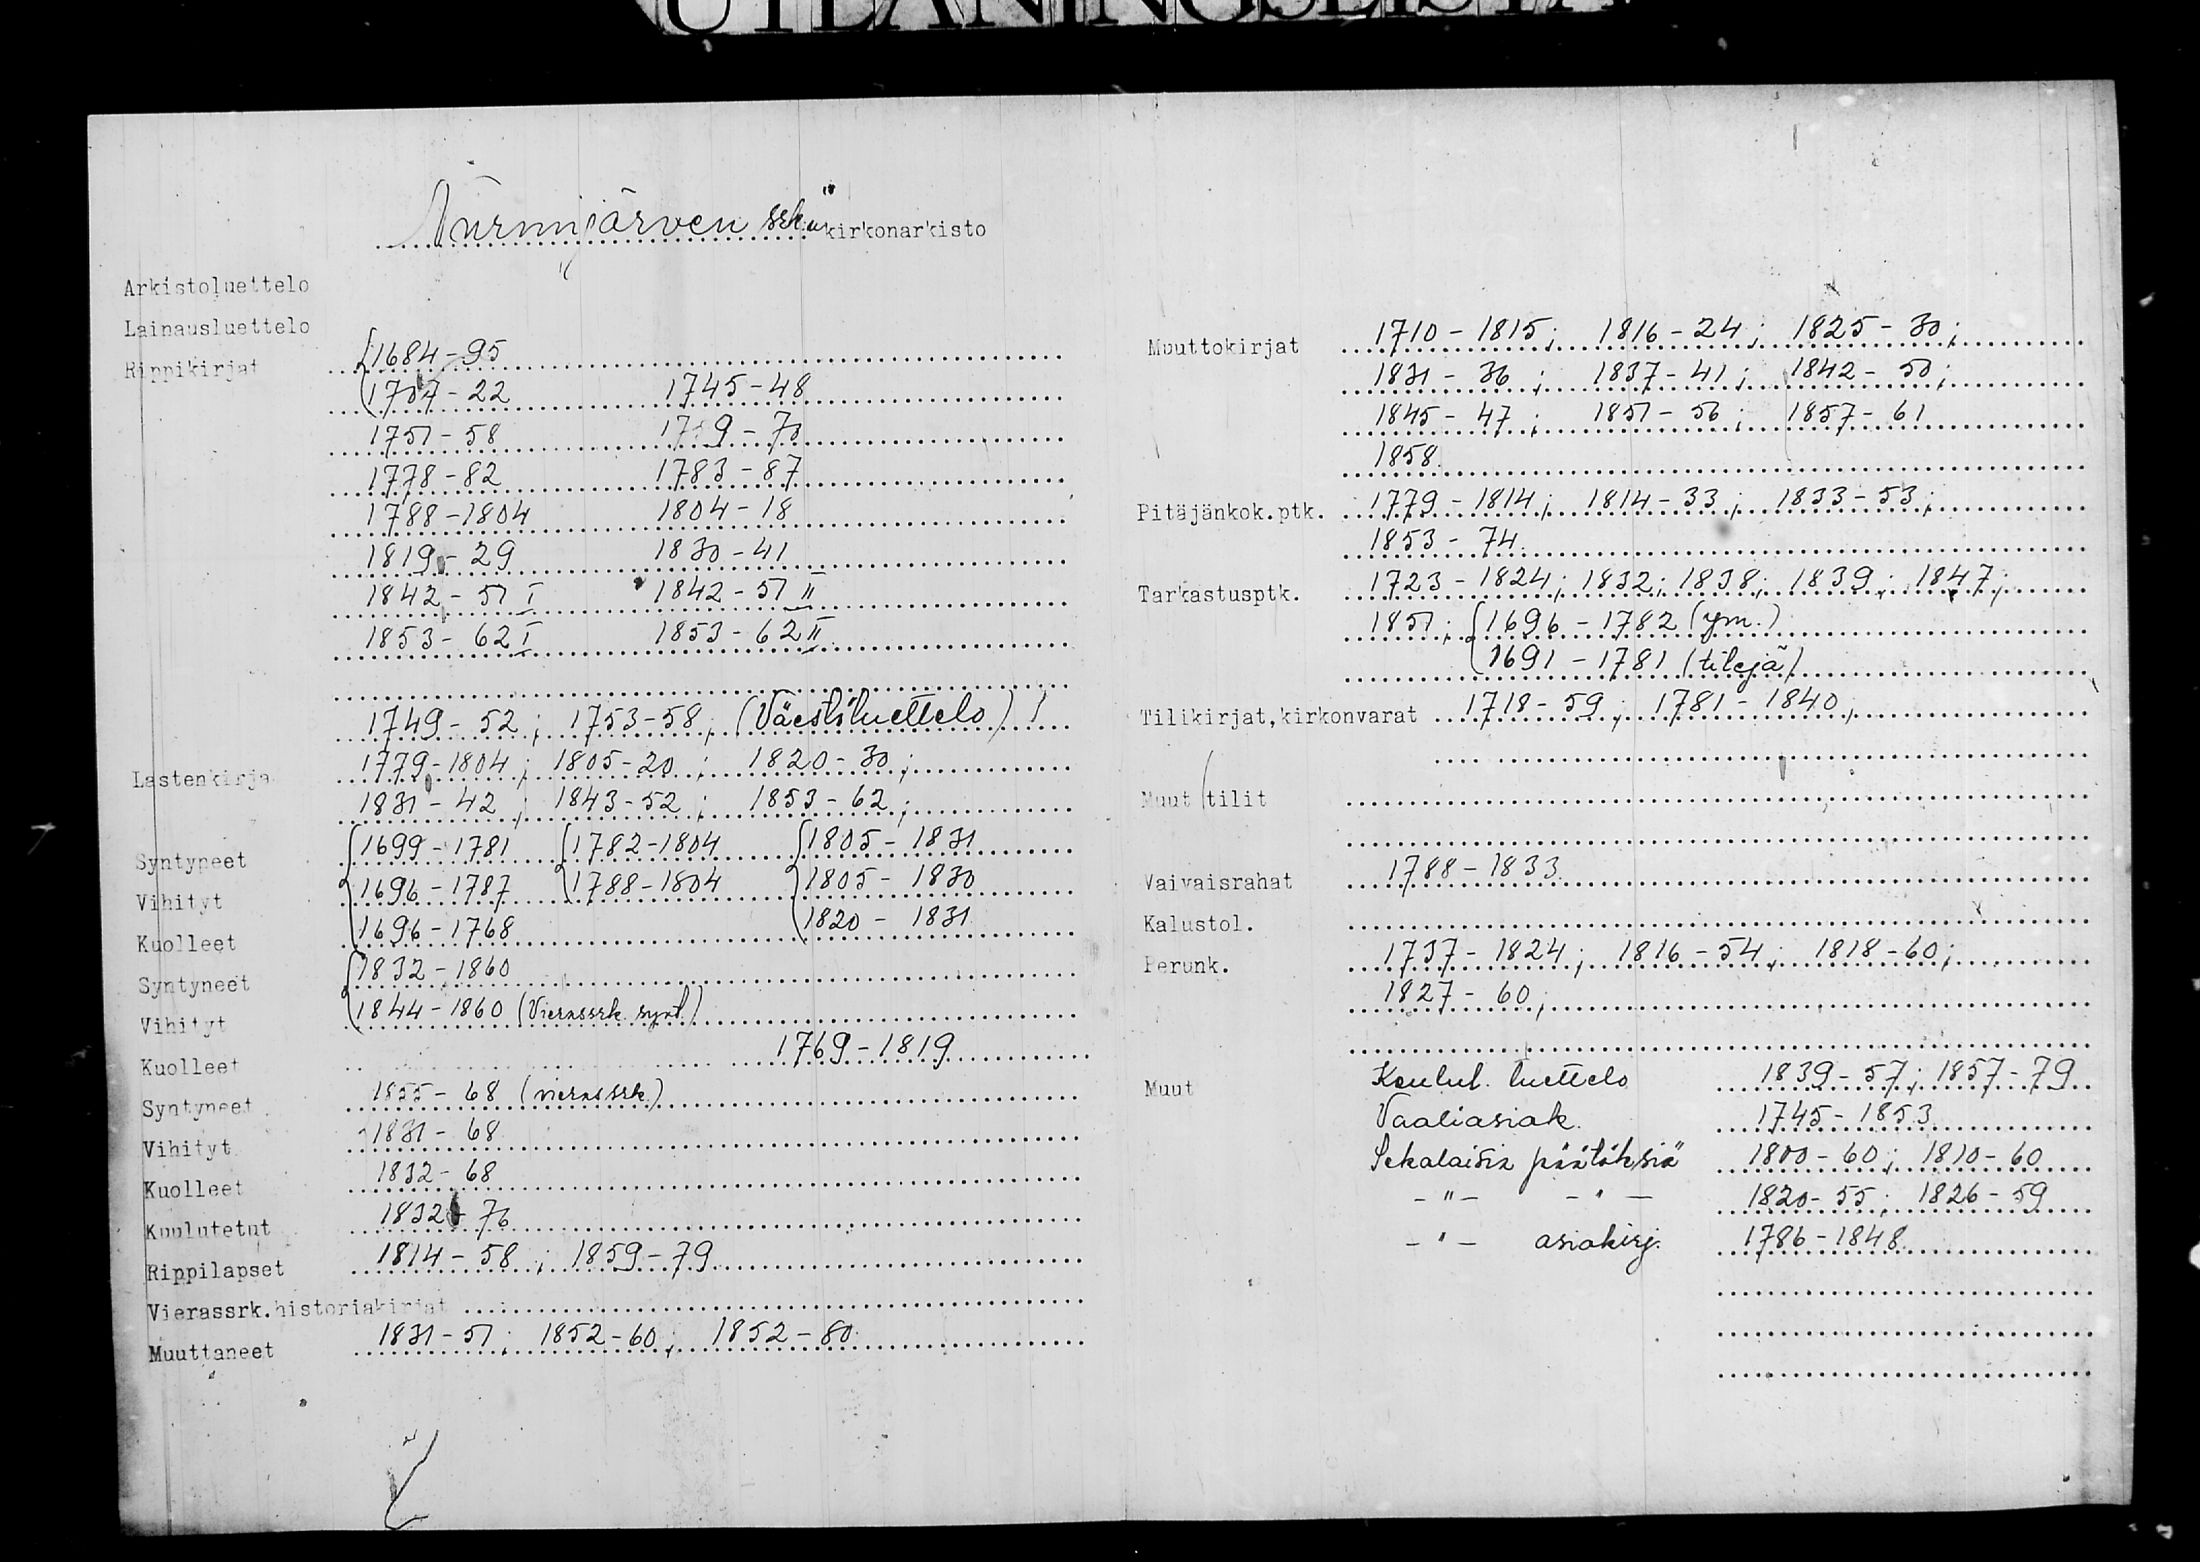 UTLÅNINGSLISTA
Nurmijärven srk:n kirkonarkisto
Arkistoluettelo
Lainausluettelo
Rippikirjat 1684-95
1707-22 1745-48
1751-58 1759-70
1778-82 1783-87
1788-1804 1804-18
1819-29 1830-41
1842-51 I 1842-51 II
1853-62 I 1853-62 II
1749-52; 1753-58; (Väestöluettelo)
Lastenkirja 1779-1804; 1805-20; 1820-30;
1831-42; 1843-52; 1853-62;
Syntyneet 1699-1781 1782-1804 1805-1831
Vihityt 1696-1787 1788-1804 1805-1830
Kuolleet 1696-1768 1820-1831
Syntyneet 1832-1860
Vihityt 1844-1860 (Vierassrk. synt.)
Kuolleet 1769-1819
Syntyneet 1855-68 (vierassrk.)
Vihityt 1831-68
Kuolleet 1832-68
Kuulutetut 1832-76
Rippilapset 1814-58; 1859-79
Vierassrk.historiakirjat
Muuttaneet 1831-51; 1852-60; 1852-80
Muuttokirjat 1710-1815; 1816-24; 1825-30;
1831-36; 1837-41; 1842-50;
1845-47; 1851-56; 1857-61
1858
Pitäjänkok.ptk. 1779-1814; 1814-33; 1833-53;
1853-74
Tarkastusptk. 1723-1824; 1832; 1838; 1839; 1847;
1851; 1696-1782 (ym.)
1691-1781 (tilejä)
Tilikirjat,kirkonvarat 1718-59; 1781-1840;
Muut tilit
Vaivaisrahat 1788-1833
Kalustol.
Perunk. 1737-1824; 1816-54; 1818-60;
1827-60;
Muut Kuulut. luettelo 1839-57; 1857-79
Vaaliasiak. 1745-1853
Sekalaisia päätöksiä 1800-60; 1810-60
-"- -"- 1820-55; 1826-59
-"- asiakirj. 1786-1848